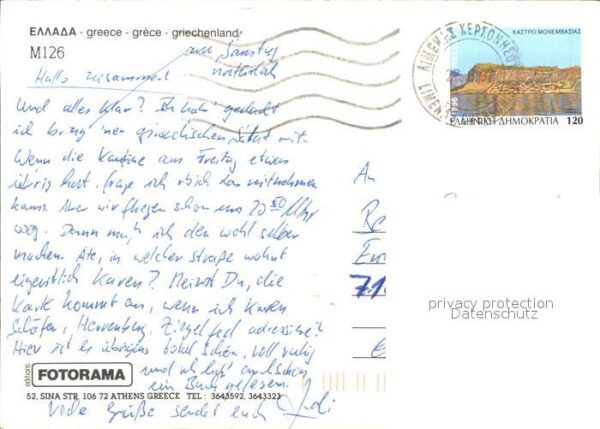 ΕΛΛΑΔΑ - greece - grèce - griechenland
M126
am Samstag
natürlich
Hallo zusammen!
Und alles klar? Ich hab' gedacht
ich bring 'nen griechischen Salat mit.
Wenn die Kantine am Freitag etwas
übrig hat, frage ich ob ich das mitnehmen
kann. Aber wir fliegen schon um 20 50 Uhr
weg. Dann muß ich den wohl selber
machen. Ate, in welcher Straße wohnt
eigentlich Karen? Meinst Du, die
Karte kommt an, wenn ich Karen
Schäfer, Herrenberg, Ziegelfeld adressiere?
Hier ist es übrigens total schön, voll ruhig
und ich hab' endlich
ein Buch gelesen.
Viele Grüße sendet euch
An
71
ΚΑΣΤΡΟ ΜΟΝΕΜΒΑΣΙΑΣ
ΕΛΛΗΝΙΚΗ ΔΗΜΟΚΡΑΤΙΑ 120
ΛΙΜΕΝΑΣ ΧΕΡΣΟΝΗΣΟΥ
privacy protection
Datenschutz
editions
FOTORAMA
52, SINA STR. 106 72 ATHENS GREECE TEL : 3643592, 3643323